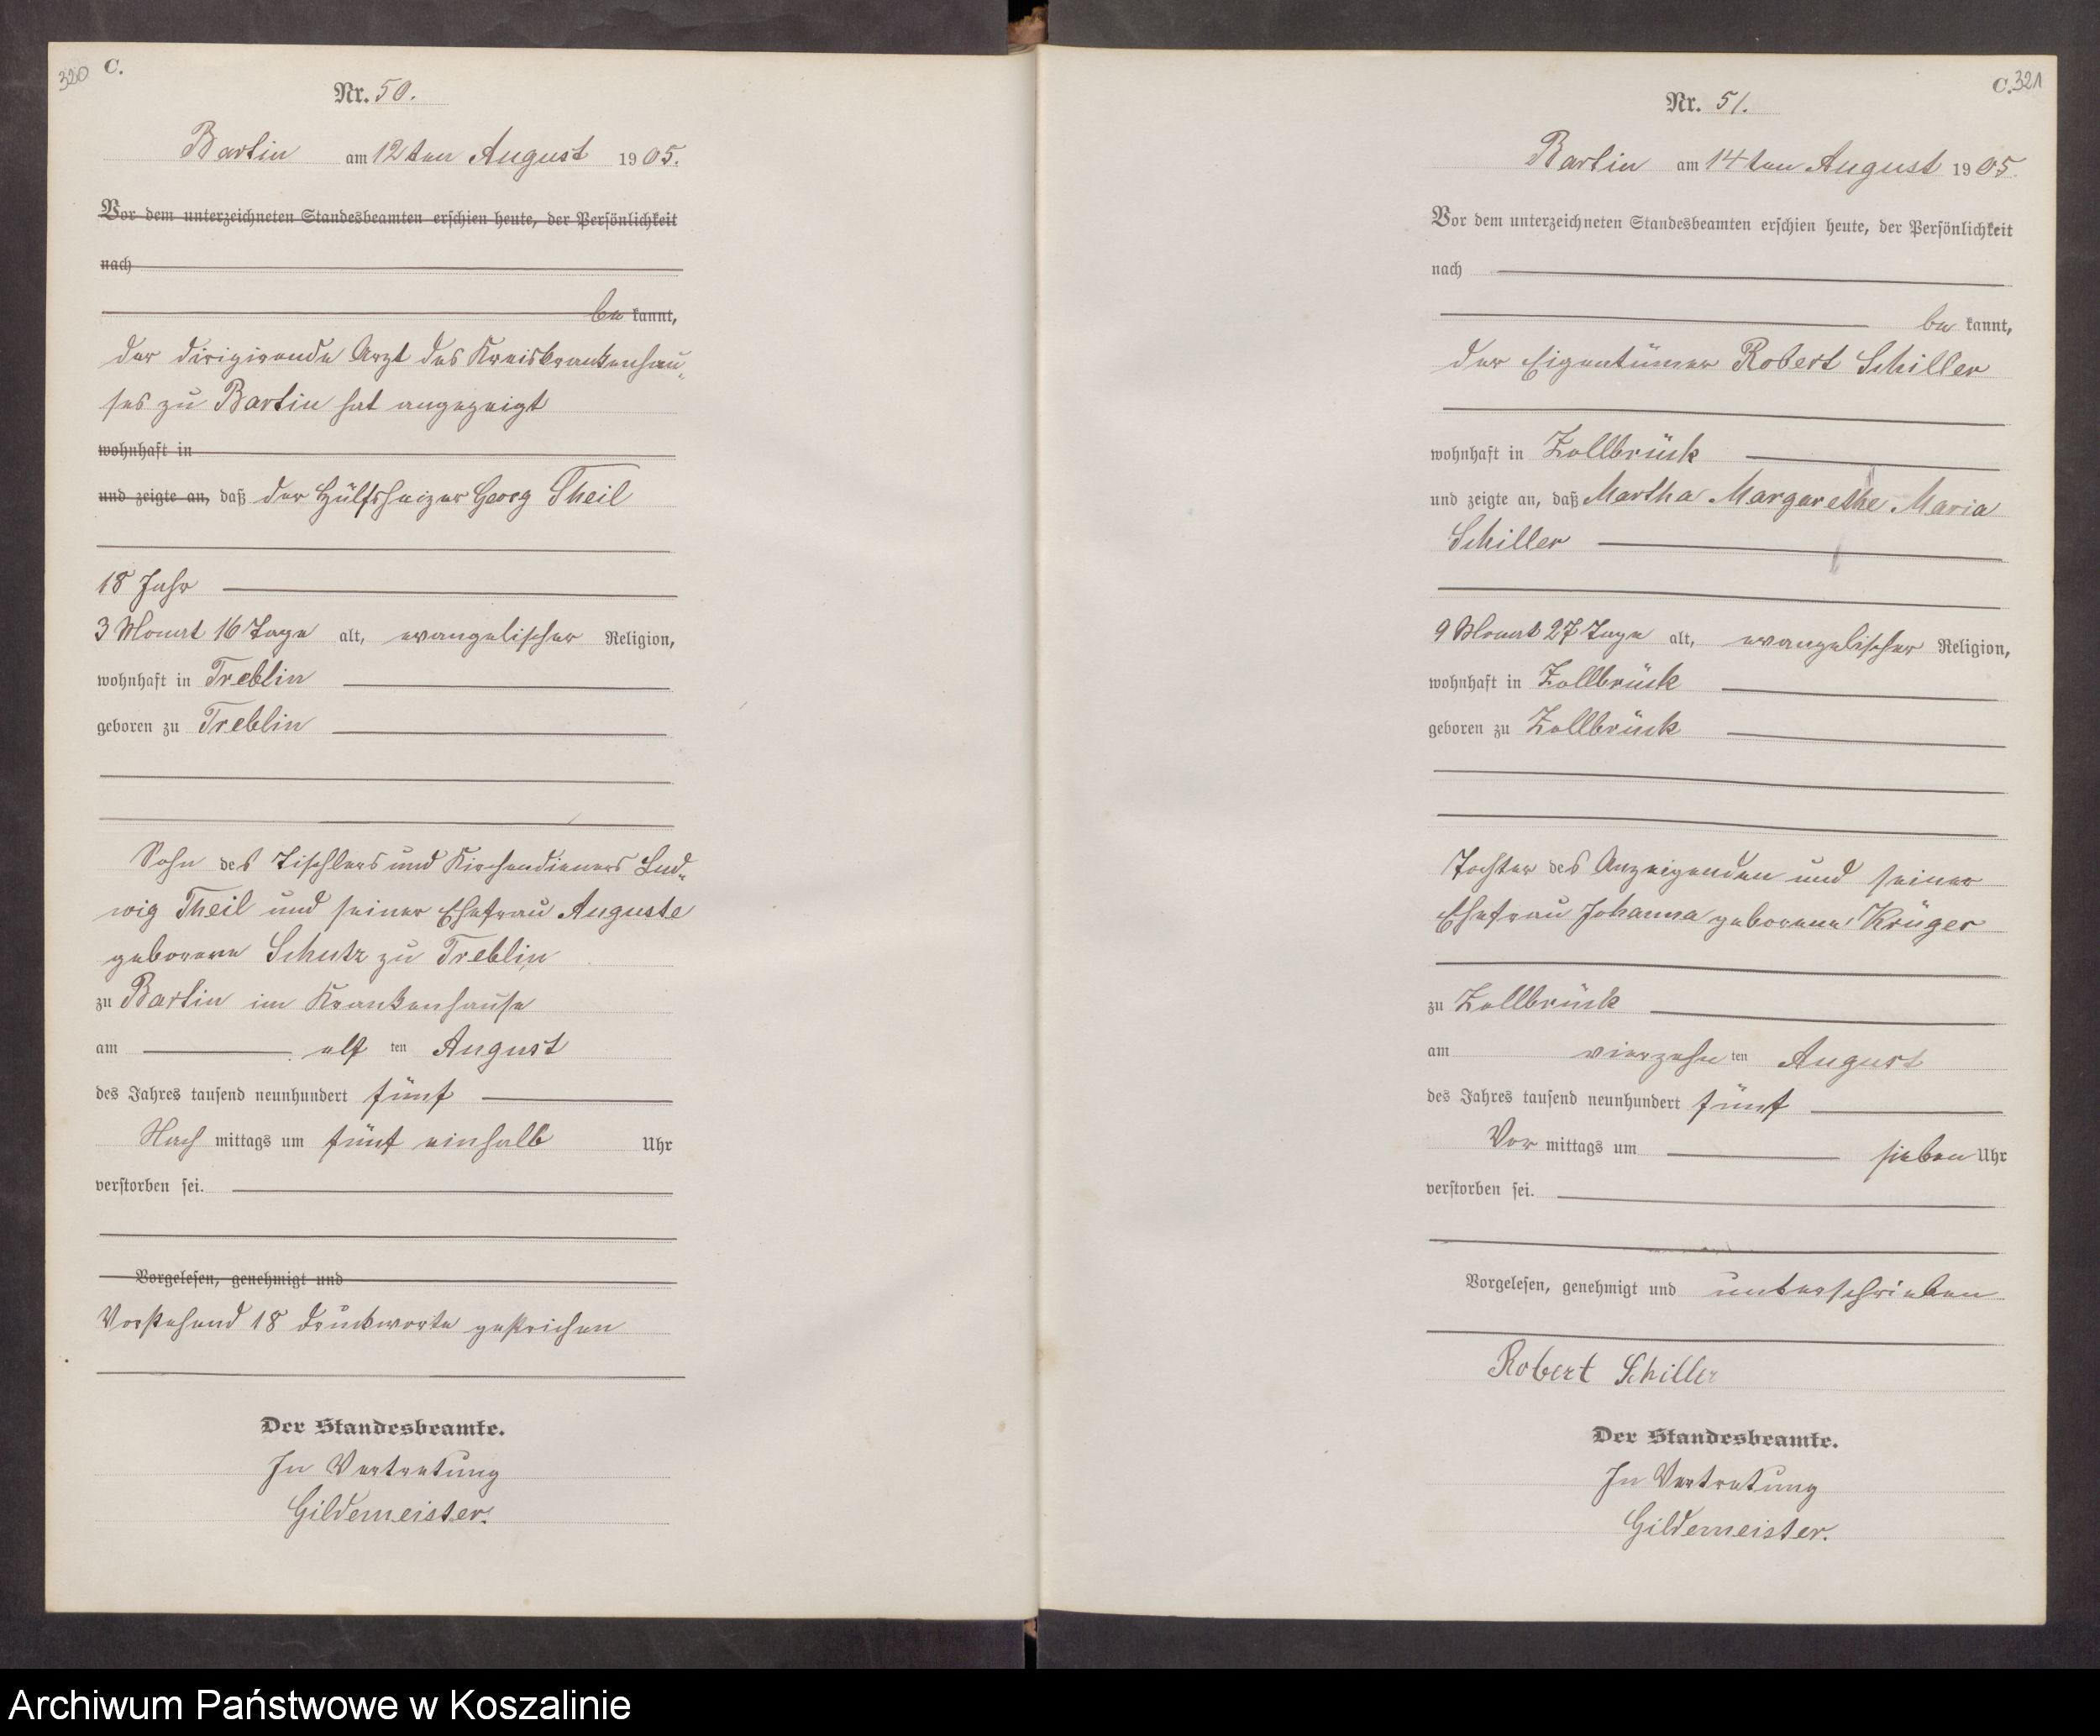 320 C.
Nr. 50.
Bartin am 12ten August 1905.
Vor dem unterzeichneten Standesbeamten erschien heute, der Persönlichkeit
nach
be kannt,
der dirigirende Arzt des Kreiskrankenhau-
ses zu Bartin hat angezeigt
wohnhaft in
und zeigte an, daß der Hülfsheizer Georg Theil
18 Jahr
3 Monat 16 Tage alt, evangelischer Religion,
wohnhaft in Treblin
geboren zu Treblin
Sohn des Tischlers und Kirchendieners Lud-
wig Theil und seiner Ehefrau Auguste
geborene Schutz zu Treblin
zu Bartin im Krankenhause
am elf ten August
des Jahres tausend neunhundert fünf
Nach mittags um fünf einhalb Uhr
verstorben sei.
Vorgelesen, genehmigt und
Vorstehend 18 Druckworte gestrichen
Der Standesbeamte.
In Vertretung
Gildemeister.
C. 321
Nr. 51.
Bartin am 14ten August 1905.
Vor dem unterzeichneten Standesbeamten erschien heute, der Persönlichkeit
nach
be kannt,
der Eigentümer Robert Schiller
wohnhaft in Zollbrück
und zeigte an, daß Martha Margarethe Maria
Schiller
9 Monat 27 Tage alt, evangelischer Religion,
wohnhaft in Zollbrück
geboren zu Zollbrück
Tochter des Anzeigenden und seiner
Ehefrau Johanna geborene Krüger
zu Zollbrück
am vierzehn ten August
des Jahres tausend neunhundert fünf
Vor mittags um sieben Uhr
verstorben sei.
Vorgelesen, genehmigt und unterschrieben
Robert Schiller
Der Standesbeamte.
In Vertretung
Gildemeister.
Archiwum Państwowe w Koszalinie